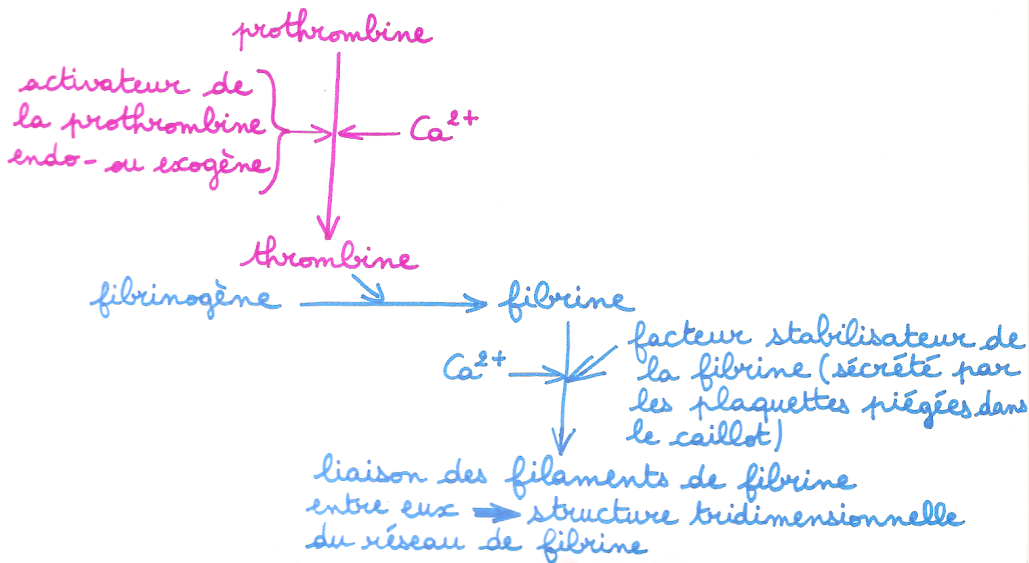 prothrombine
activateur de
la prothrombine
endo- ou exogène
Ca²⁺
thrombine
fibrinogène
fibrine
Ca²⁺
facteur stabilisateur de
la fibrine (sécrété par
les plaquettes piégées dans
le caillot)
liaison des filaments de fibrine
entre eux ➡ structure tridimensionnelle
du réseau de fibrine